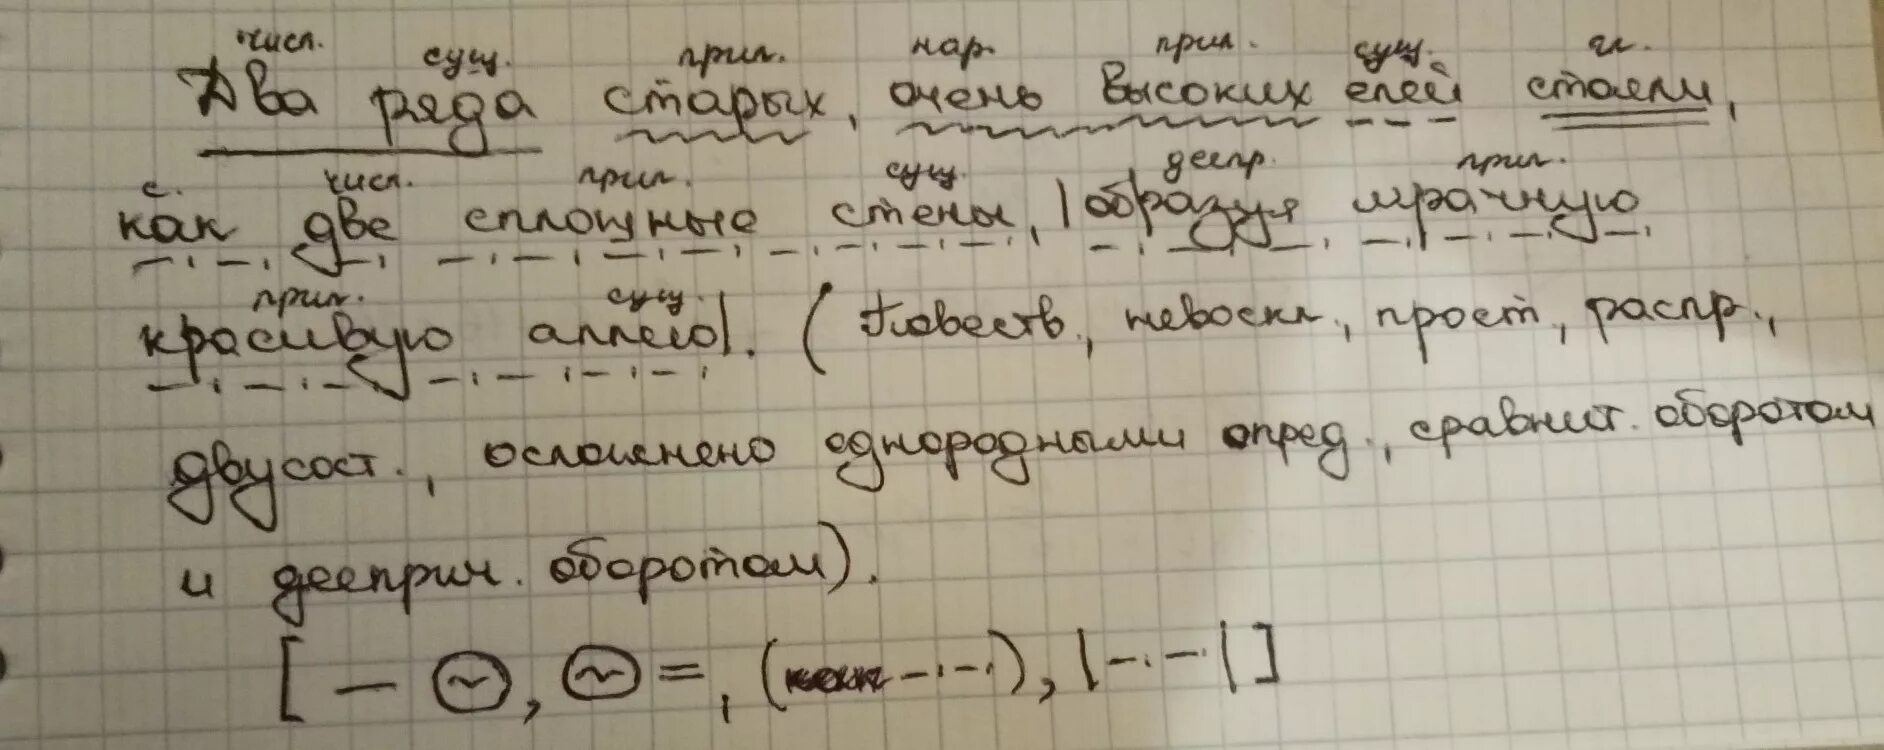 числ. сущ. прил. нар. прил. сущ. гл.
Два ряда старых, очень высоких елей стояли,
с. числ. прил. сущ. деепр. прил.
как две сплошные стены, |образуя мрачную
прил. сущ.
красивую аллею|. (Повеств., невоскл., прост, распр.,
двусост., осложнено однородными опред., сравнит. оборотом
и дееприч. оборотом).
[ — ~, ~ =, (как –·–·), |–·–·| ]